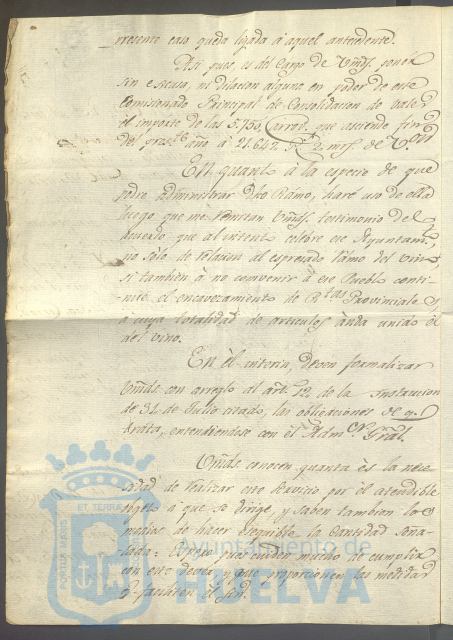 presente caso queda ligada á aquel antecedente.
Asi pues, es del cargo de Vmds. poner
sin escusa, ni dilacion alguna en poder de ese
Comisionado Principal de Consolidacion de Vales
el importe de las 5.750, arrobas que asciende fin
del preste. año á 21.642 rs. 2 mrs. de Von
En quanto á la especie de que
podrá administrar dho Ramo, haré uso de ella
luego que me remitan Vmds. testimonio del
Acuerdo que al intento celebre ese Ayuntamto.
no solo de relacion al expresado ramo del vino,
si tambien á no convenir á ese Pueblo conti-
nue el encavezamiento de Rtas Provinciales,
á cuya totalidad de articulos anda unido el
del vino.
En el interin, deven formalizar
Vmds con arreglo al art. 12 de la Instruccion
de 31 de Julio citado, las obligaciones de q.
trata, entendiendose con el Admor Gral.
Vmds conocen quanta és la nece
sidad de realizar este servicio por el atendible
objeto á que se dirige, y saben tambien los
medios de hacer exequible la cantidad seña-
lada: Espero que cuiden mucho de cumplir
con este deber y que proporcionen las medidas
q. faciliten el fin.
PORTUS MARIS
ET TERRAE
Ayuntamiento de
HUELVA